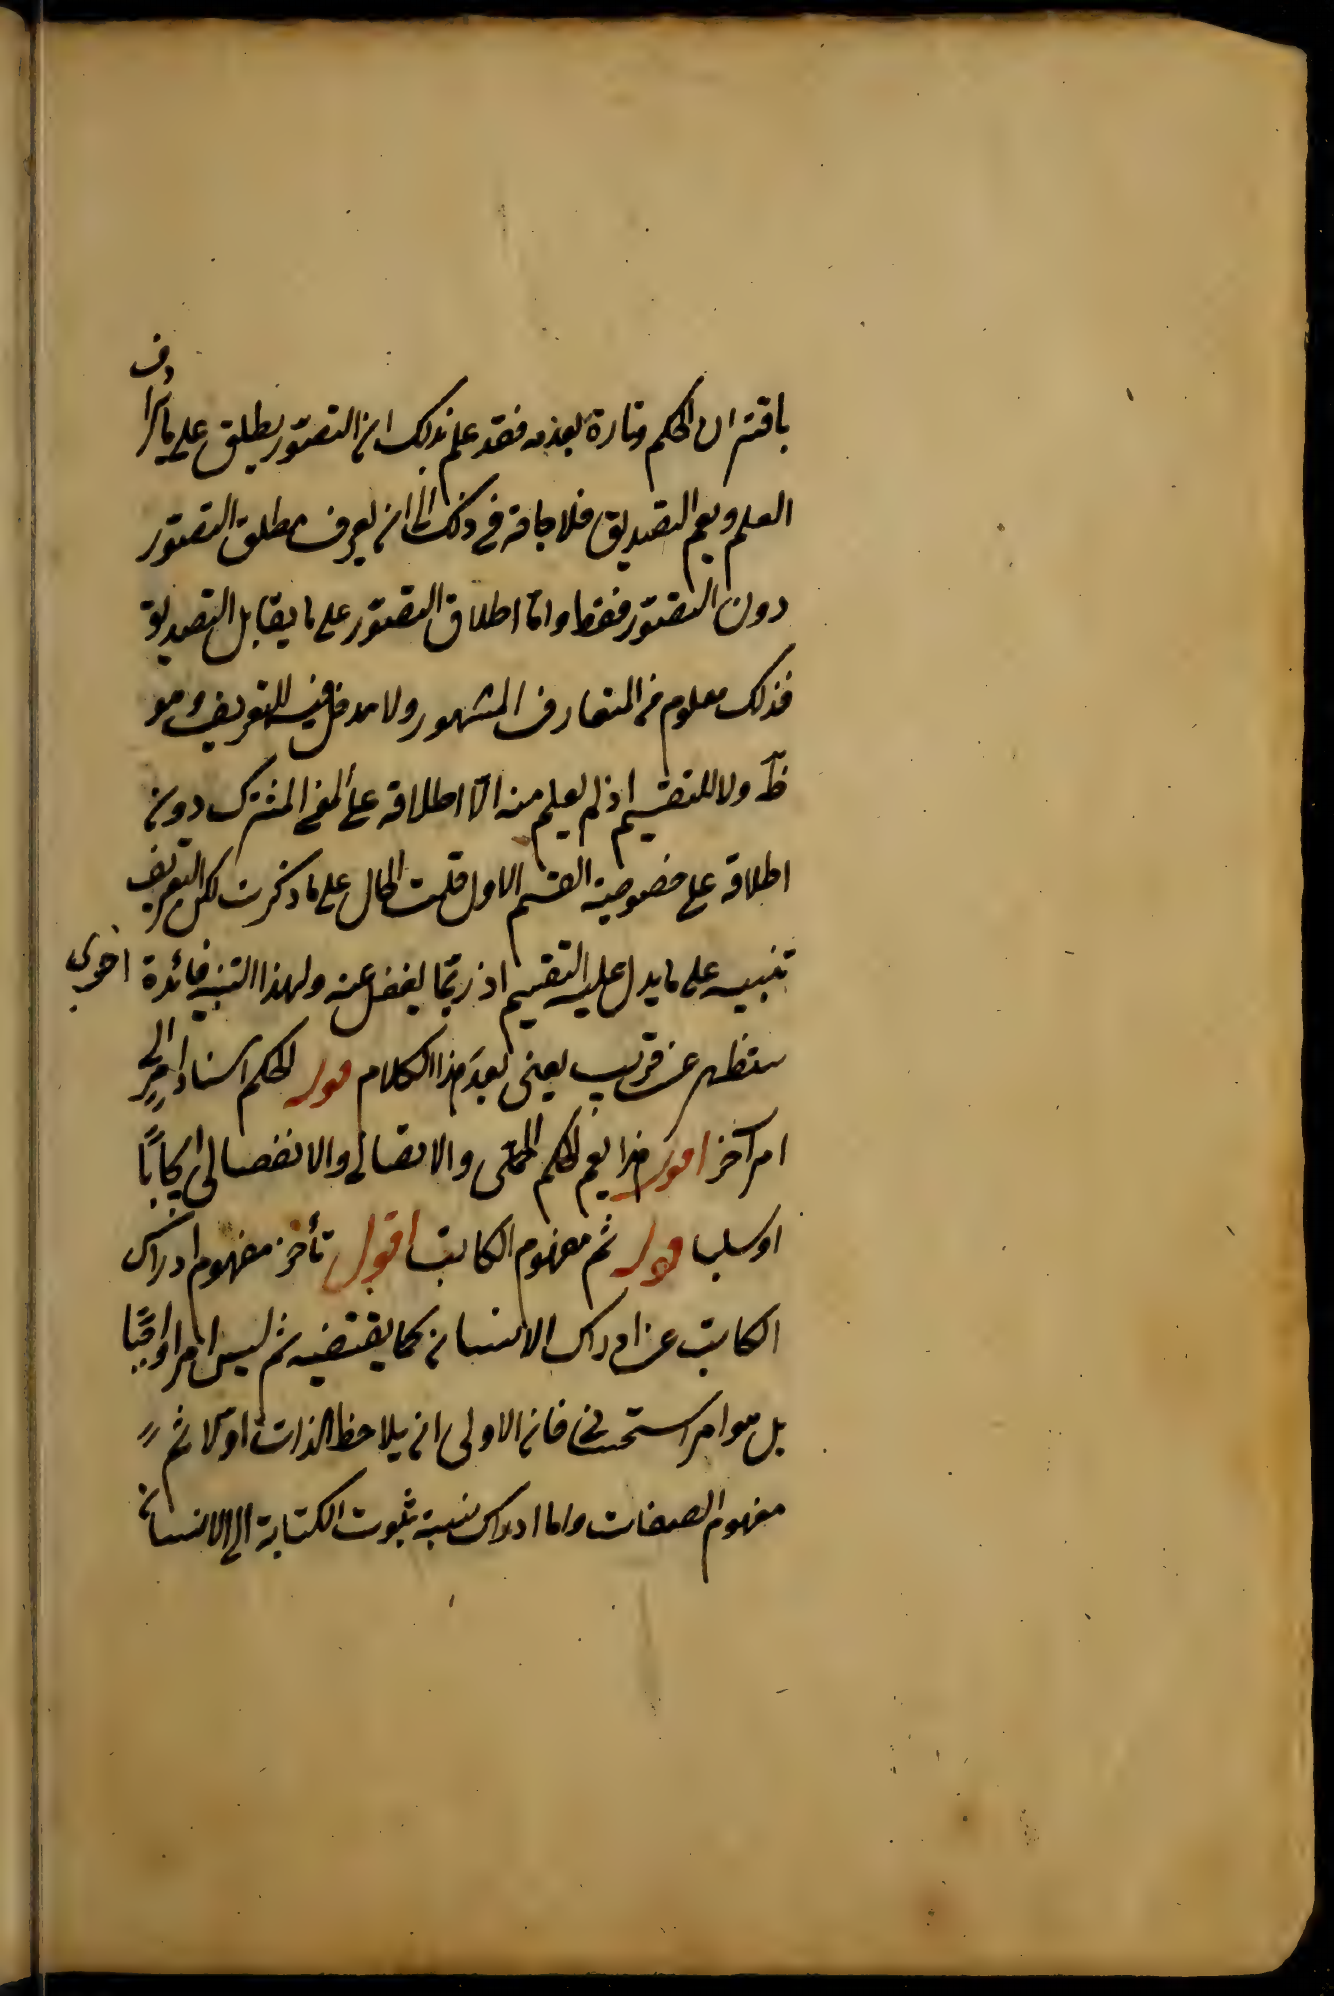 باقتران الحكم وتارة بعدمه فقد علم بذلك ان التصوّر يطلق على ما يرادف
العلم ويعم التصديق فلا حاجة في ذلك الى ان يعرف مطلق التصوّر
دون التصوّر فقط واما اطلاق التصوّر على ما يقابل التصديق
فذلك معلوم من المتعارف المشهور ولا مدخل فيه للتعريف وهو
ظ ولا للتقسيم اذ لم يعلم منه الّا اطلاقه على المعنى المشترك دون
اطلاقه على خصوصية القسم الاول قلت الحال على ما ذكرت لكن التعريف
تنبيه على ما يدل عليه التقسيم اذ ربّما يغفل عنه ولهذا التنبيه فائدة اخرى
ستظهر عن قريب يعنى بعد هذا الكلام قوله الحكم اسناد امرٍ الى
امر آخر اقول هذا يعم الحكم الحملى والاتصالى والانفصالى ايجابًا
او سلبا قوله ثم مفهوم الكاتب اقول تأخر مفهوم ادراك
الكاتب عن ادراك الانسان كما يقتضيه ثم ليس امرا واجبًا
بل هو امر استحسانى فان الاولى ان يلاحظ الذات اولا ثم
مفهوم الصفات واما ادراك نسبة ثبوت الكتابة الى الانسان